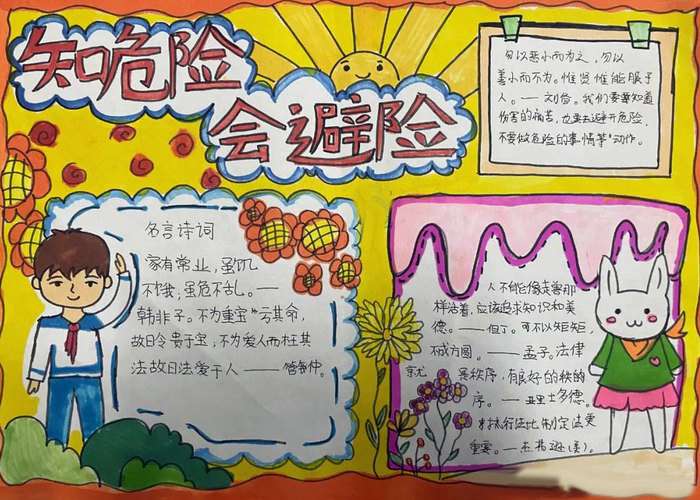 知危险
会避险
勿以恶小而为之，勿以
善小而不为。惟贤惟能服于
人。——刘备。我们要知道
伤害的痛苦，也要去避开危险，
不要做危险的事情等"动作。
名言诗词
家有常业，虽饥
不饿；虽危不乱。——
韩非子。不为重宝"亏其命，
故曰令贵于宝，不为爱人而枉其
法故曰法爱于人——管仲。
人不能像卖那
样活着，应该追求知识和美
德。——但丁。不可以矩矩，
不成方圆。——孟子。法律
就 是秩序，有良好的秩的
序。——亚里士多德。
执行法比制定法更
重要。——杰弗逊(美)。